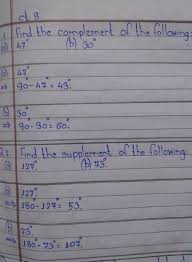 1. Find the complement of the following:
(a) 47° (b) 30°
(a) 47°
⇒ 90-47= 43°
(b) 30°
⇒ 90-30= 60°
2. Find the supplement of the following:
(a) 127° (b) 73°
(a) 127°
⇒ 180-127= 53°
(b) 73°
⇒ 180-73= 107°